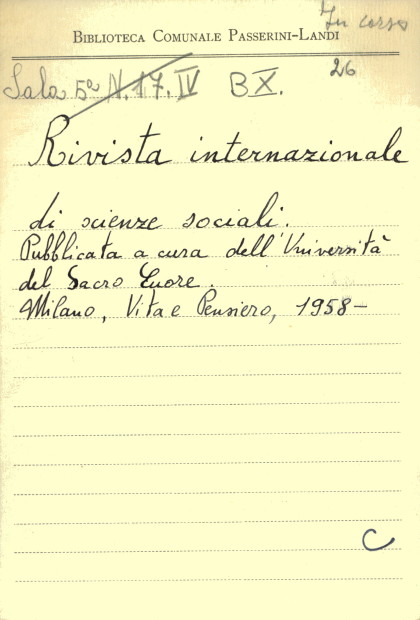 In corso
BIBLIOTECA COMUNALE PASSERINI-LANDI
26
Sala 5ª N. 17. IV B X.
Rivista internazionale
di scienze sociali.
Pubblicata a cura dell'Università
del Sacro Cuore.
Milano, Vita e Pensiero, 1958-
C